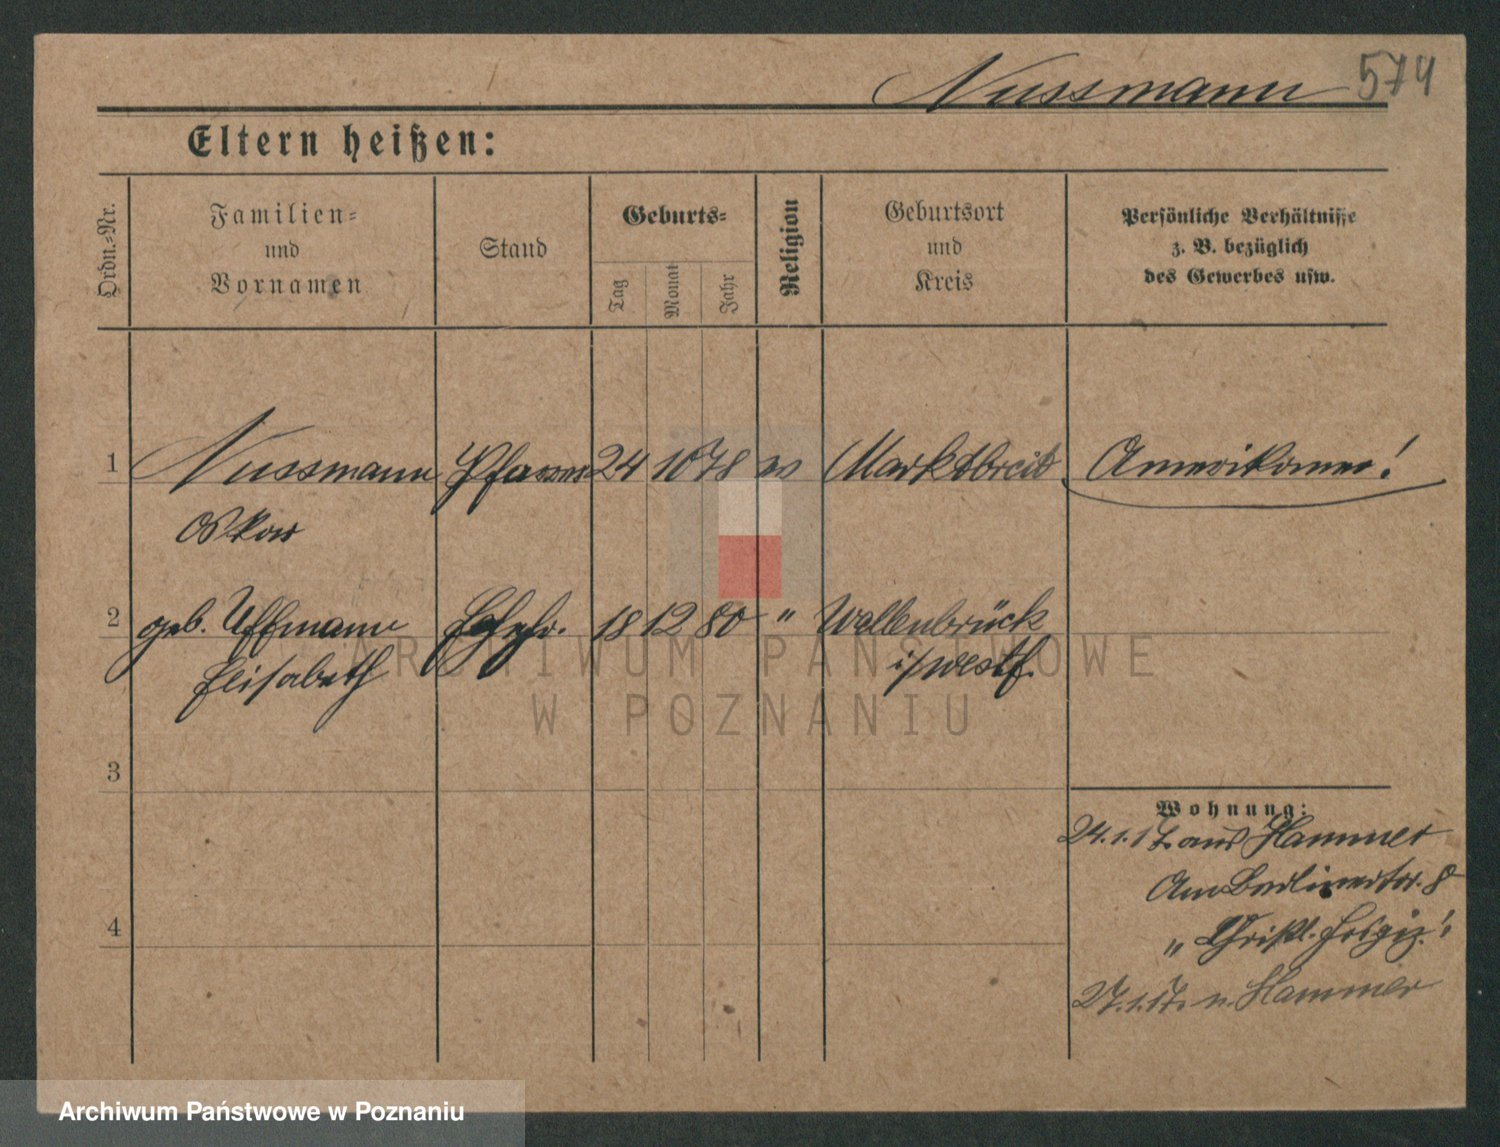 Nussmann 574
Eltern heißen:
Ordn.-Nr.
Familien-
und
Vornamen
Stand
Geburts-
Tag
Monat
Jahr
Religion
Geburtsort
und
Kreis
Persönliche Verhältnisse
z. B. bezüglich
des Gewerbes usw.
1 Nussmann Pfarrer 24 10 78 ev Marktbreit Amerikaner!
Oskar
2 geb. Uffmann Ehefr. 18 12 80 " Wallenbrück
Elisabeth i/Westf.
3
4
Wohnung:
24.1.17. aus Hammer
Am Berlinertor. 8
„Christl. Hospiz."
27.1.17. n. Hammer
ARCHIWUM PAŃSTWOWE
W POZNANIU
Archiwum Państwowe w Poznaniu